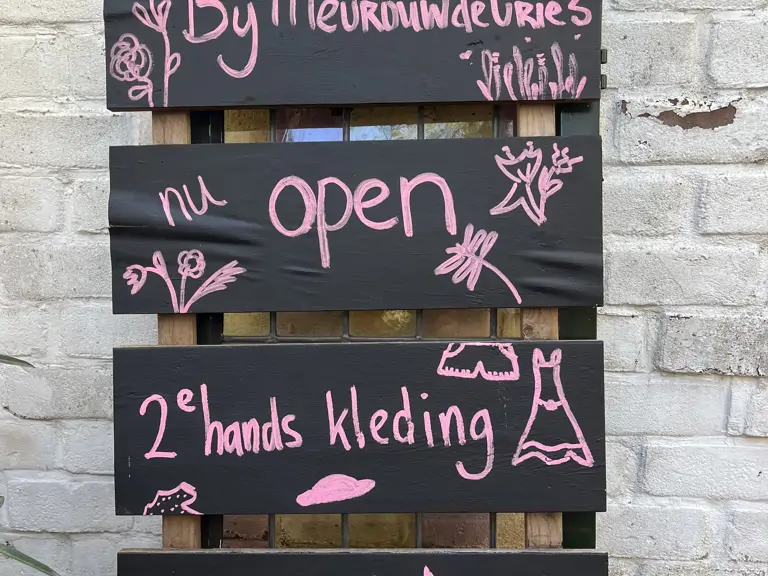 By MeurouwdeVries
nu open
2e hands kleding